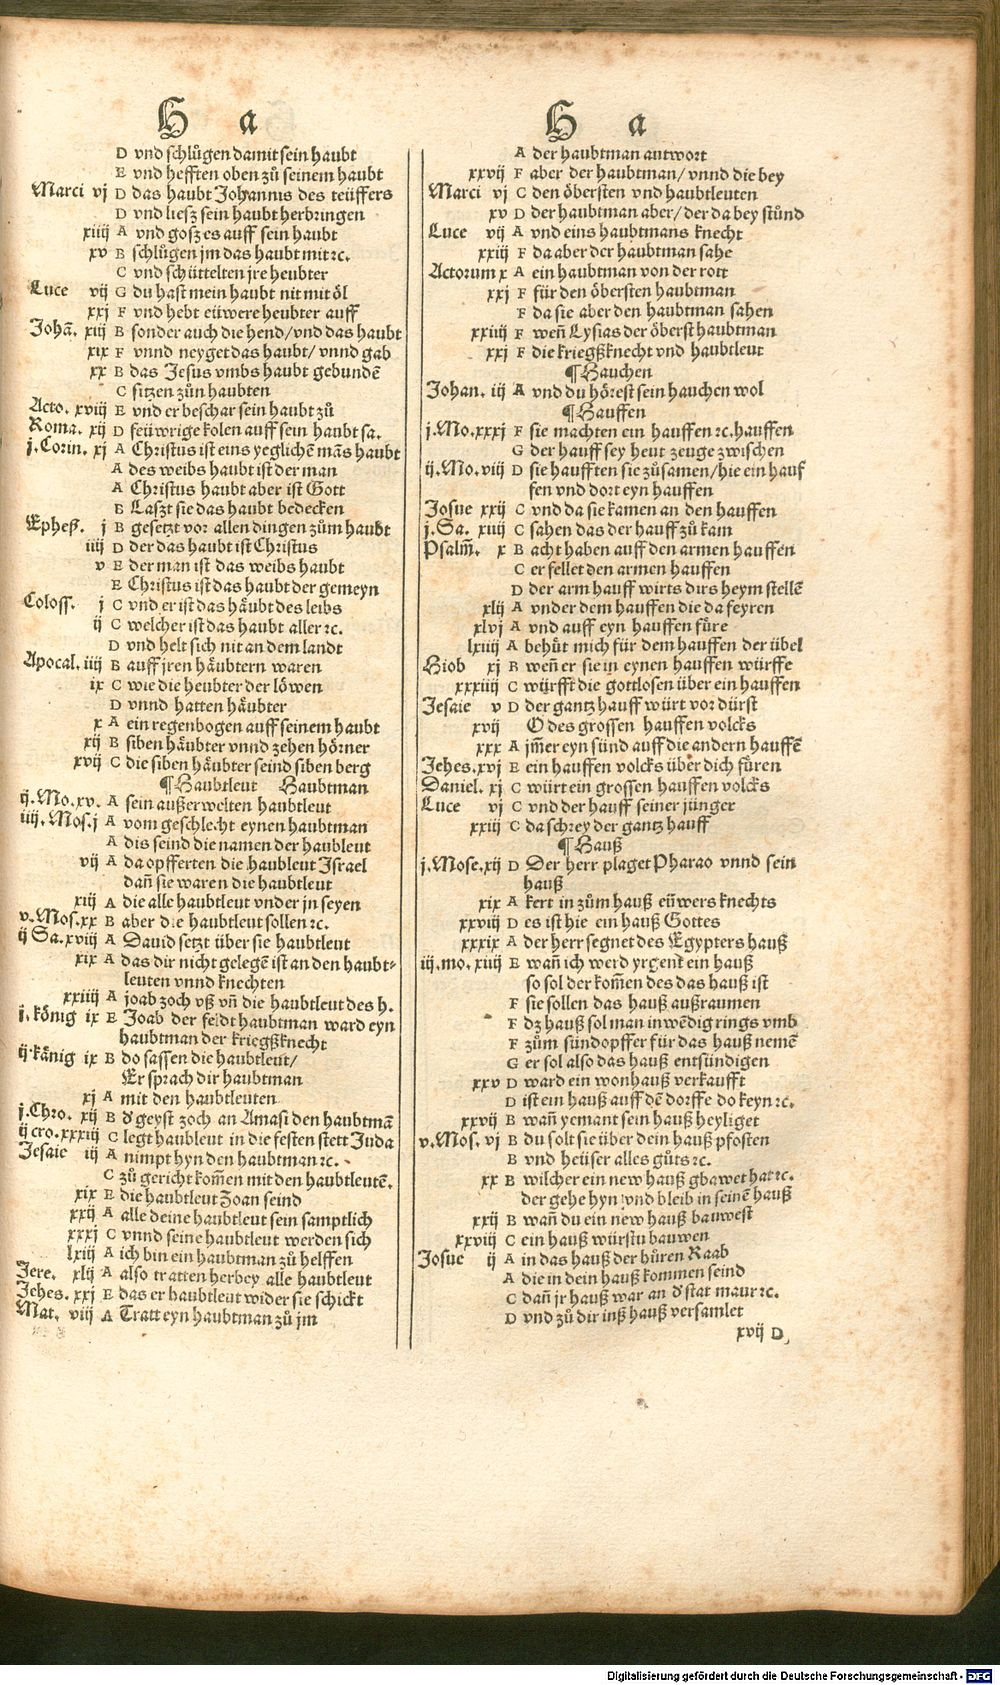 H a
D vnd schlůgen damit sein haubt
E vnd hefften oben zů seinem haubt
Marci vj D das haubt Johannis des teüffers
D vnd liesz sein haubt herbringen
xiiij A vnd gosz es auff sein haubt
xv B schlůgen jm das haubt mit ꝛc.
C vnd schüttelten jre heubter
Luce vij G du hast mein haubt nit mit öl
xxj F vnd hebt eüwere heubter auff
Johã. xiij B sonder auch die hend/vnd das haubt
xix F vnnd neyget das haubt/ vnnd gab
xx B das Jesus vmbs haubt gebundẽ
C sitzen zůn haubten
Acto. xviij E vnd er beschar sein haubt zů
Roma. xij D feüwrige kolen auff sein haubt sa.
j.Corin. xj A Christus ist eins yeglichẽ mãs haubt
A des weibs haubt ist der man
A Christus haubt aber ist Gott
B Laszt sie das haubt bedecken
Epheß. j B gesetzt vor allen dingen zům haubt
iiij D der das haubt ist Christus
v E der man ist das weibs haubt
E Christus ist das haubt der gemeyn
Coloss. j C vnd er ist das häubt des leibs
ij C welcher ist das haubt aller ꝛc.
D vnd helt sich nit an dem landt
Apocal. iiij B auff jren häubtern waren
ix C wie die heubter der löwen
D vnnd hatten häubter
x A ein regenbogen auff seinem haubt
xij B siben häubter vnnd zehen hörner
xvij C die siben häubter seind siben berg
¶Haubtleut Haubtman
ij.Mo.xv. A sein außerwelten haubtleut
iiij. Mos.j A vom geschlecht eynen haubtman
A dis seind die namen der haubleut
vij A da opfferten die haubleut Israel
dañ sie waren die haubtleut
xiij A die alle haubtleut vnder jn seyen
v.Mos.xx B aber die haubtleut sollen ꝛc.
ij Sa.xviij A Dauid setzt über sie haubtleut
xix A das dir nicht gelegẽ ist an den haubt-
leuten vnnd knechten
xxiiij A joab zoch vß vñ die haubtleut des h.
j.könig ix E Joab der feldthaubtman ward eyn
haubtman der kriegßknecht
ij.känig ix B do sassen die haubtleut/
Er sprach dir haubtman
xj A mit den haubtleuten
j.Chro. xij B d'geyst zoch an Amasi den haubtmã
ij cro.xxxiij C legt haubleut in die festen stett Juda
Jesaie iij A nimpt hyn den haubtman ꝛc.
C zů gericht kom̃en mit den haubtleutẽ.
xix E die haubtleut Zoan seind
xxij A alle deine haubtleut sein samptlich
xxxj C vnnd seine haubtleut werden sich
lxiij A ich bin ein haubtman zů helffen
Jere. xlij A also tratten herbey alle haubtleut
Jehes. xxj E das er haubtleut wider sie schickt
Mat. viij A Tratt eyn haubtman zů jm
H a
A der haubtman antwort
xxvij F aber der haubtman/ vnnd die bey
Marci vj C den öbersten vnd haubtleuten
xv D der haubtman aber/der da bey stůnd
Luce vij A vnd eins haubtmans knecht
xxiij F da aber der haubtman sahe
Actorum x A ein haubtman von der rott
xxj F für den öbersten haubtman
F da sie aber den haubtman sahen
xxiiij F weñ Lysias der öberst haubtman
xxj F die kriegßknecht vnd haubtleut
¶Hauchen
Johan. iij A vnd du hörest sein hauchen wol
¶Hauffen
j.Mo.xxxj F sie machten ein hauffen ꝛc. hauffen
G der hauff sey heut zeuge zwischen
ij.Mo.viij D sie haufften sie zůsamen/hie ein hauf
fen vnd dort eyn hauffen
Josue xxij C vnd da sie kamen an den hauffen
j.Sa. xiiij C sahen das der hauff zů kam
Psalm̃. x B acht haben auff den armen hauffen
C er fellet den armen hauffen
D der arm hauff wirts dirs heym stellẽ
xlij A vnder dem hauffen die da feyren
xlvj A vnd auff eyn hauffen füre
lxiiij A behůt mich für dem hauffen der übel
Hiob xj B weñ er sie in eynen hauffen würffe
xxxiiij C würfft die gottlosen über ein hauffen
Jesaie v D der gantz hauff würt vor dürst
xvij O des grossen hauffen volcks
xxx A jm̃er eyn sünd auff die andern hauffẽ
Jehes.xvj E ein hauffen volcks über dich füren
Daniel. xj C würt ein grossen hauffen volcks
Luce vj C vnd der hauff seiner jünger
xxiij C da schrey der gantz hauff
¶Hauß
j.Mose.xij D Der herr plaget Pharao vnnd sein
hauß
xix A kert in zům hauß eüwers knechts
xxviij D es ist hie ein hauß Gottes
xxxix A der herr segnet des Egypters hauß
iij.mo. xiiij E wañ ich werd yrgent ein hauß
so sol der kom̃en des das hauß ist
F sie sollen das hauß außraumen
F dz hauß sol man inwẽdig rings vmb
F zům sündopffer für das hauß nemẽ
G er sol also das hauß entsündigen
xxv D ward ein wonhauß verkaufft
D ist ein hauß auff dẽ dorffe do keyn ꝛc.
xxvij B wañ yemant sein hauß heyliget
v.Mos. vj B du solt sie über dein hauß pfosten
B vnd heüser alles gůts ꝛc.
xx B wilcher ein new hauß gbawet hat ꝛc.
der gehe hyn vnd bleib in seinẽ hauß
xxij B wañ du ein new hauß bauwest
xxviij C ein hauß würstu bauwen
Josue ij A in das hauß der hůren Raab
A die in dein hauß kommen seind
C dañ jr hauß war an d'stat maur ꝛc.
D vnd zů dir inß hauß versamlet
xvij D
Digitalisierung gefördert durch die Deutsche Forschungsgemeinschaft - DFG